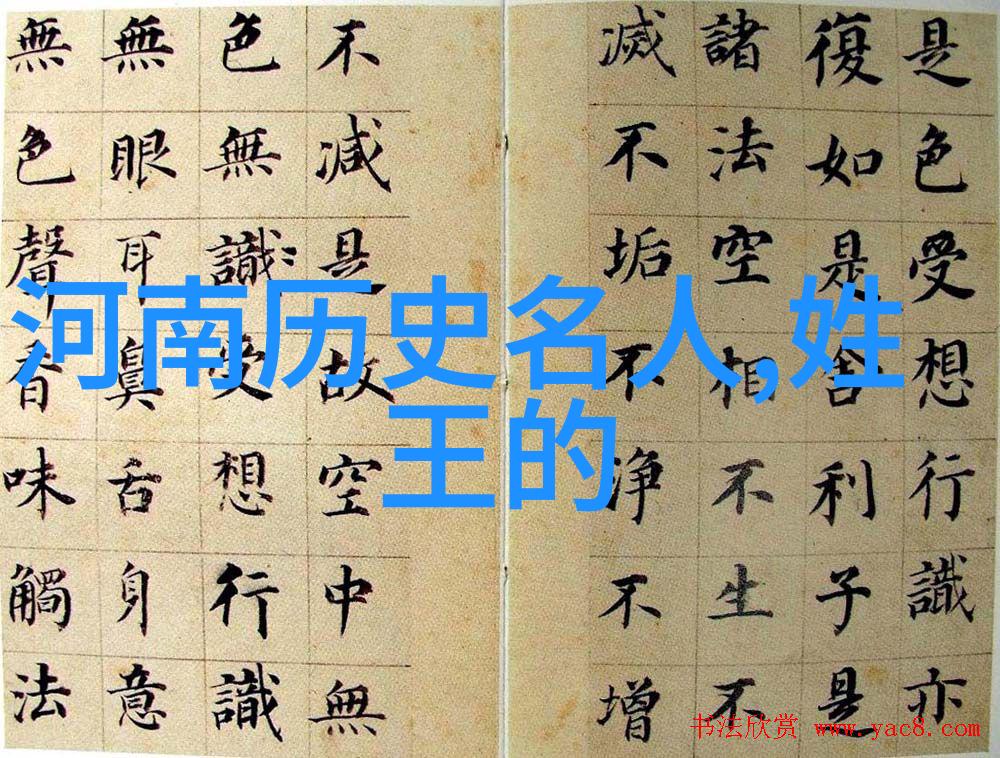 是色受想行識亦
復如是舍利子是
諸法空相不生不
滅不垢不淨不增
不減是故空中無
色無識受想行識
無眼耳鼻舌身意
無色聲香味觸法
河南历史名人,姓
王的
书法欣赏 www.yac8.com